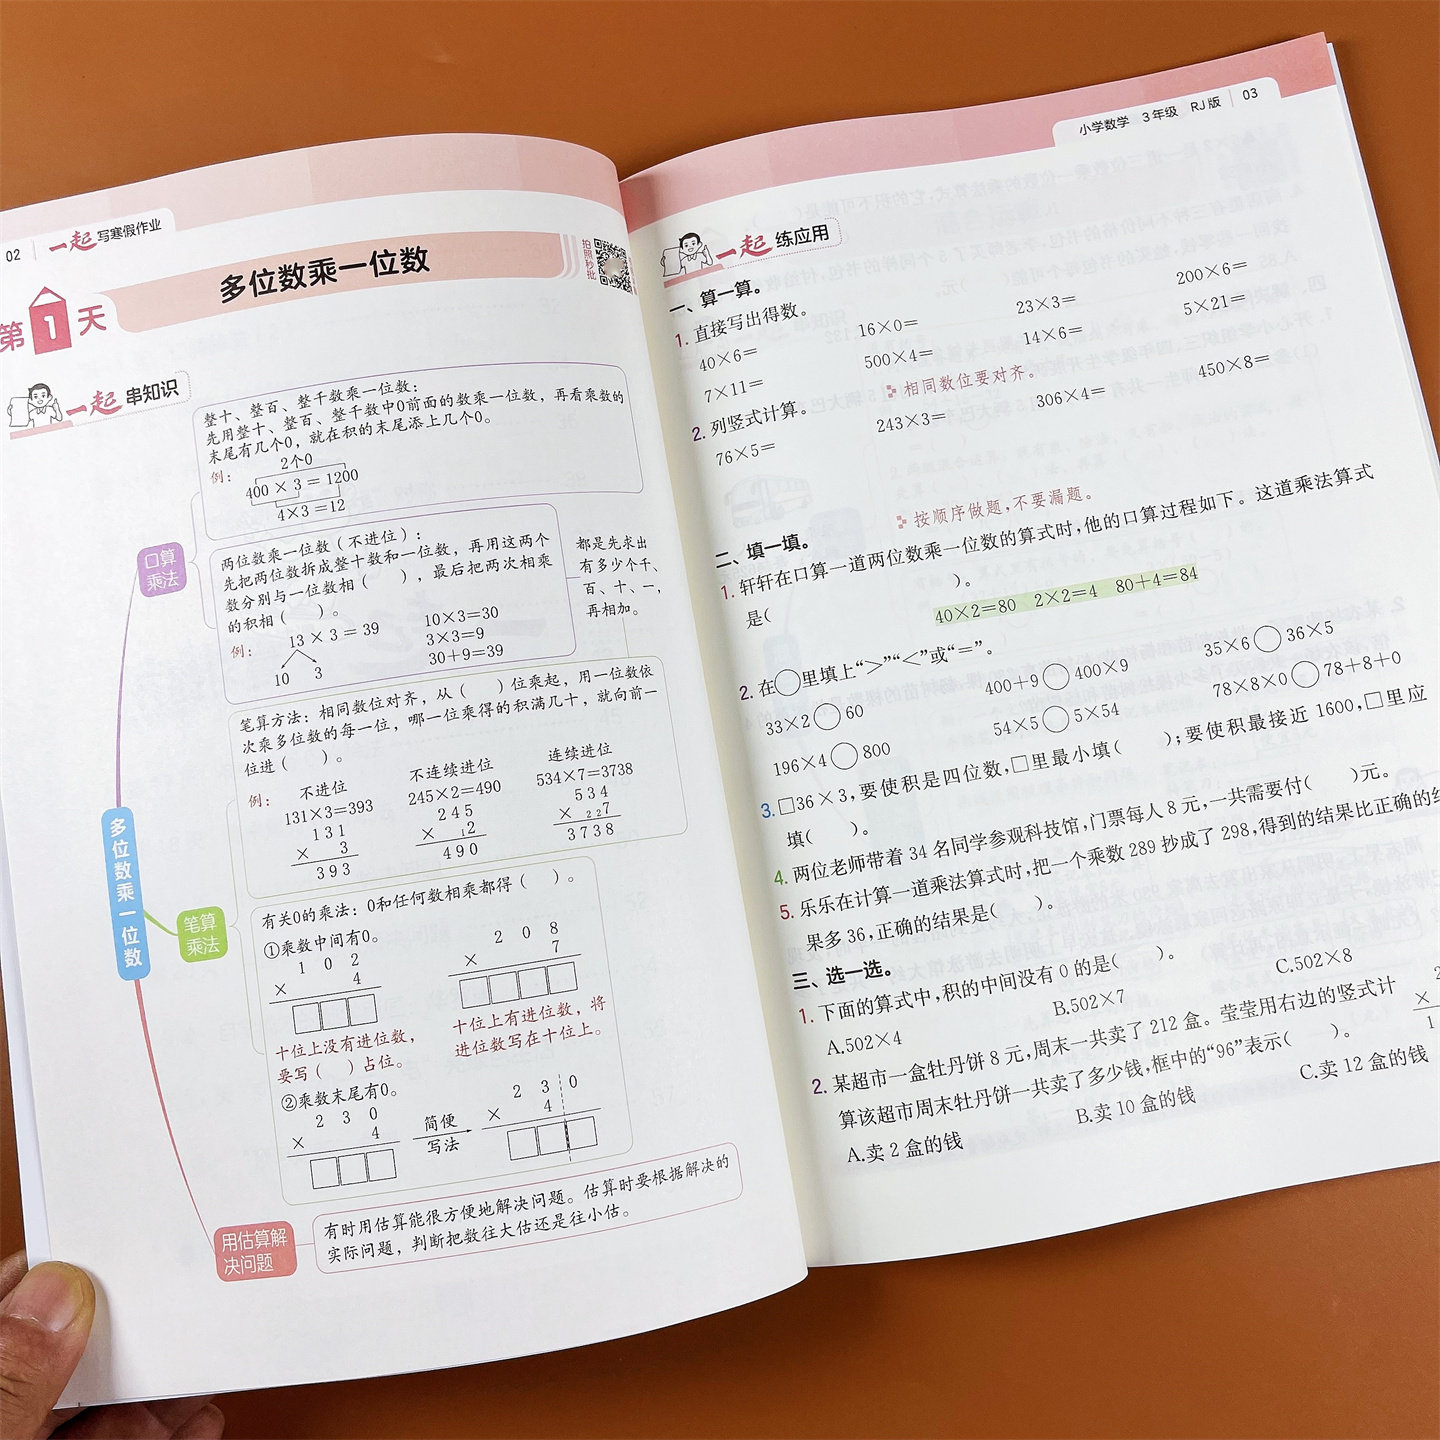 02 一起写寒假作业
第1天
多位数乘一位数
拍照秒批
一起串知识
整十、整百、整千数乘一位数：
先用整十、整百、整千数中0前面的数乘一位数，再看乘数的
末尾有几个0，就在积的末尾添上几个0。
例：
2个0
400 × 3 = 1200
4×3 =12
口算
乘法
两位数乘一位数（不进位）：
先把两位数拆成整十数和一位数，再用这两个
数分别与一位数相（ ），最后把两次相乘
的积相（ ）。
例：
13 × 3 = 39
10 3
10×3=30
3×3=9
30+9=39
都是先求出
有多少个千、
百、十、一，
再相加。
笔算方法：相同数位对齐，从（ ）位乘起，用一位数依
次乘多位数的每一位，哪一位乘得的积满几十，就向前一
位进（ ）。
例：
不进位
131×3=393
131
× 3
393
不连续进位
245×2=490
245
× 12
490
连续进位
534×7=3738
534
× 227
3738
多位数乘一位数
笔算
乘法
有关0的乘法：0和任何数相乘都得（ ）。
①乘数中间有0。
1 0 2
× 4
十位上没有进位数，
要写（ ）占位。
2 0 8
× 7
十位上有进位数，将
进位数写在十位上。
②乘数末尾有0。
2 3 0
× 4
简便
写法
2 3 0
× 4
用估算解
决问题
有时用估算能很方便地解决问题。估算时要根据解决的
实际问题，判断把数往大估还是往小估。
小学数学 3年级 RJ版 03
一起练应用
一、算一算。
1. 直接写出得数。
40×6= 16×0= 23×3= 200×6=
7×11= 500×4= 14×6= 5×21=
2. 列竖式计算。 相同数位要对齐。
76×5= 243×3= 306×4= 450×8=
二、填一填。 按顺序做题，不要漏题。
1. 轩轩在口算一道两位数乘一位数的算式时，他的口算过程如下。这道乘法算式
是( )。
40×2=80 2×2=4 80+4=84
2. 在○里填上“>”“<”或“=”。
33×2○60 400+9○400×9 35×6○36×5
196×4○800 54×5○5×54 78×8×0○78+8+0
3. □36×3，要使积是四位数，□里最小填( )；要使积最接近 1600，□里应
填( )。
4. 两位老师带着 34 名同学参观科技馆，门票每人 8 元，一共需要付( )元。
5. 乐乐在计算一道乘法算式时，把一个乘数 289 抄成了 298，得到的结果比正确的结
果多 36，正确的结果是( )。
三、选一选。
1. 下面的算式中，积的中间没有 0 的是( )。
A.502×4 B.502×7 C.502×8
2. 某超市一盒牡丹饼 8 元，周末一共卖了 212 盒。莹莹用右边的竖式计
算该超市周末牡丹饼一共卖了多少钱，框中的“96”表示( )。
A.卖 2 盒的钱 B.卖 10 盒的钱 C.卖 12 盒的钱
2
×
1